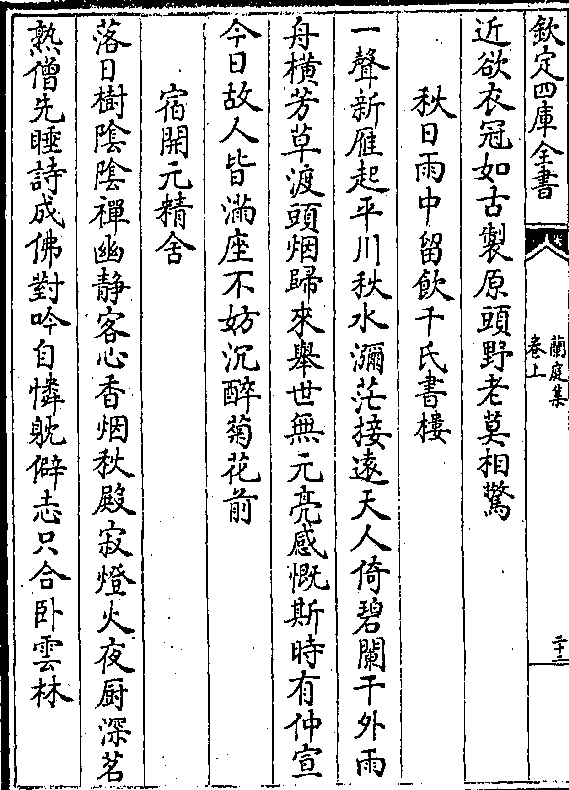 欽定四庫全書
蘭庭集
卷上
二十三
近欲衣冠如古製原頭野老莫相驚
秋日雨中留飲于氏書樓
一聲新雁起平川秋水瀰茫接遠天人倚碧闌干外雨
舟橫芳草渡頭烟歸來舉世無元亮感慨斯時有仲宣
今日故人皆滿座不妨沉醉菊花前
宿開元精舍
落日樹陰陰禪幽静客心香烟秋殿寂燈火夜厨深茗
熟僧先睡詩成佛對吟自憐躭僻志只合卧雲林